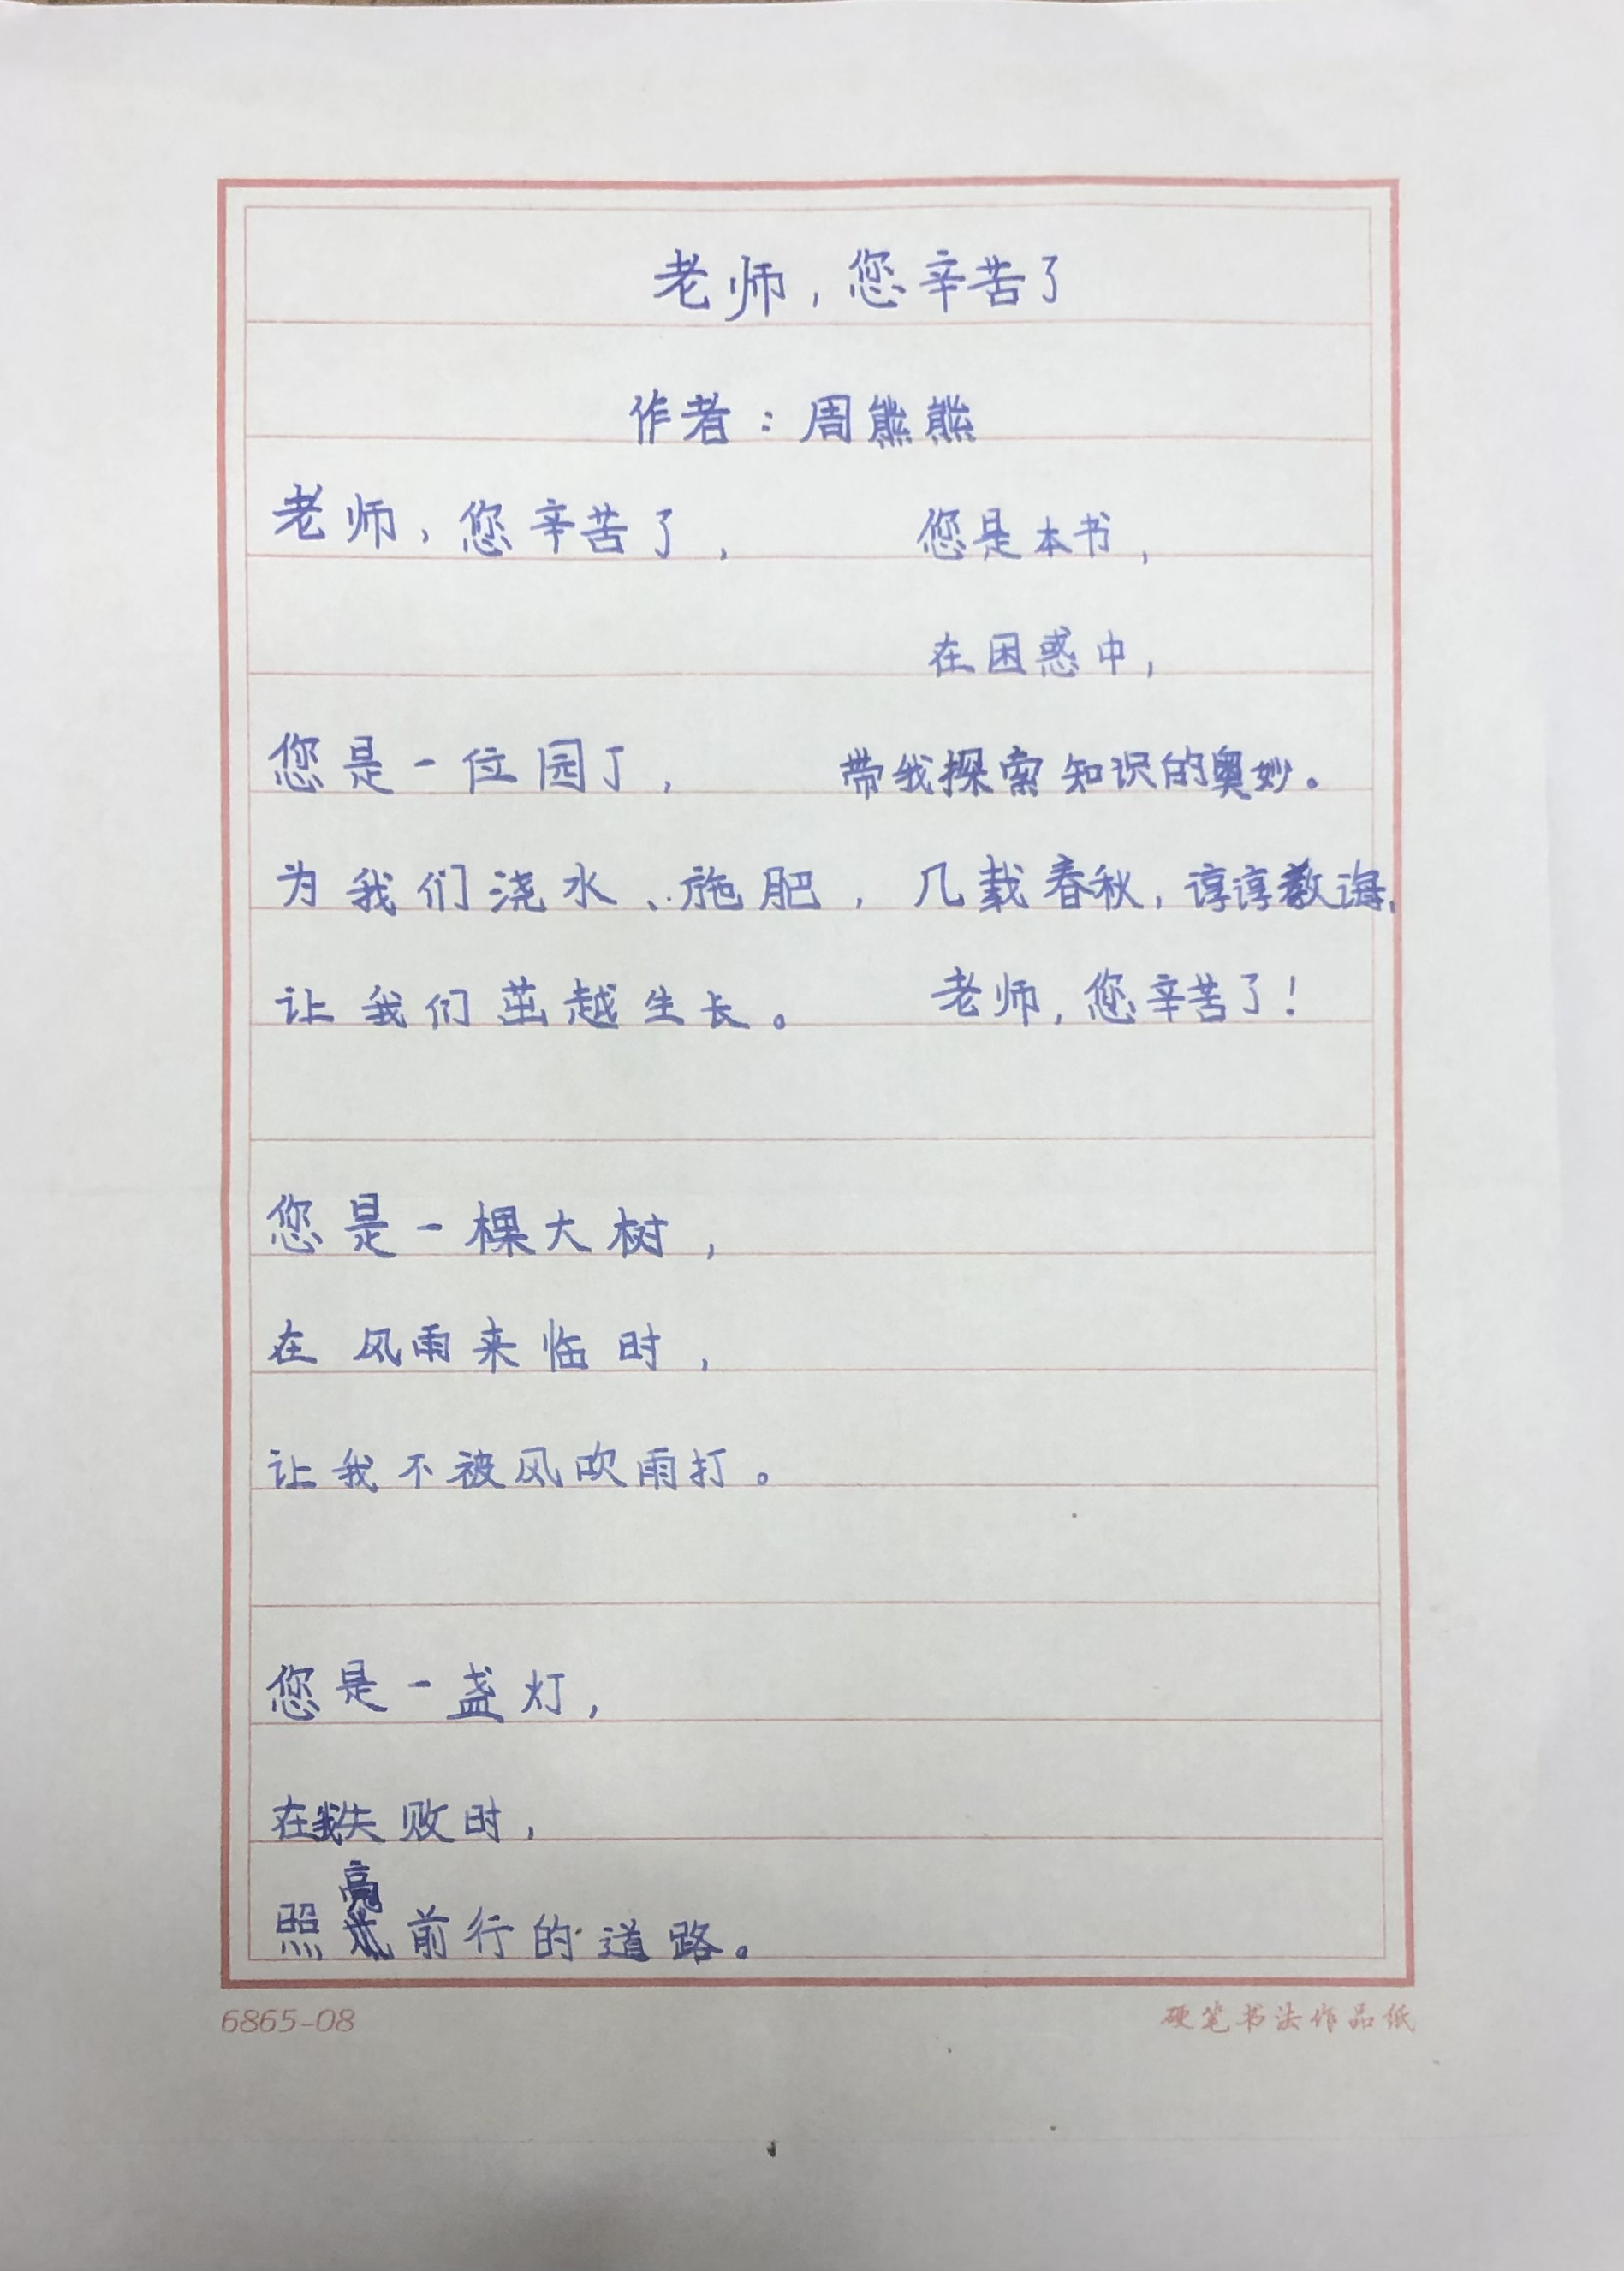 老师,您辛苦了
作者:周熊熊
老师,您辛苦了,
您是一位园丁,
为我们浇水、施肥,
让我们茁越生长。
您是一棵大树,
在风雨来临时,
让我不被风吹雨打。
您是一盏灯,
在我失败时,
照亮前行的道路。
您是本书,
在困惑中,
带我探索知识的奥妙。
几载春秋,谆谆教诲,
老师,您辛苦了!
6865-08
硬笔书法作品纸